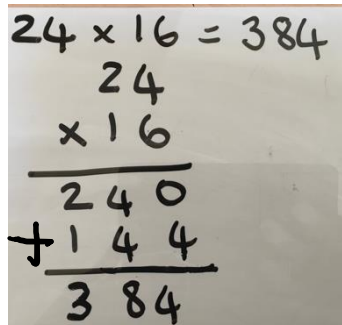 24 × 16 = 384
24
× 16
240
+ 144
384